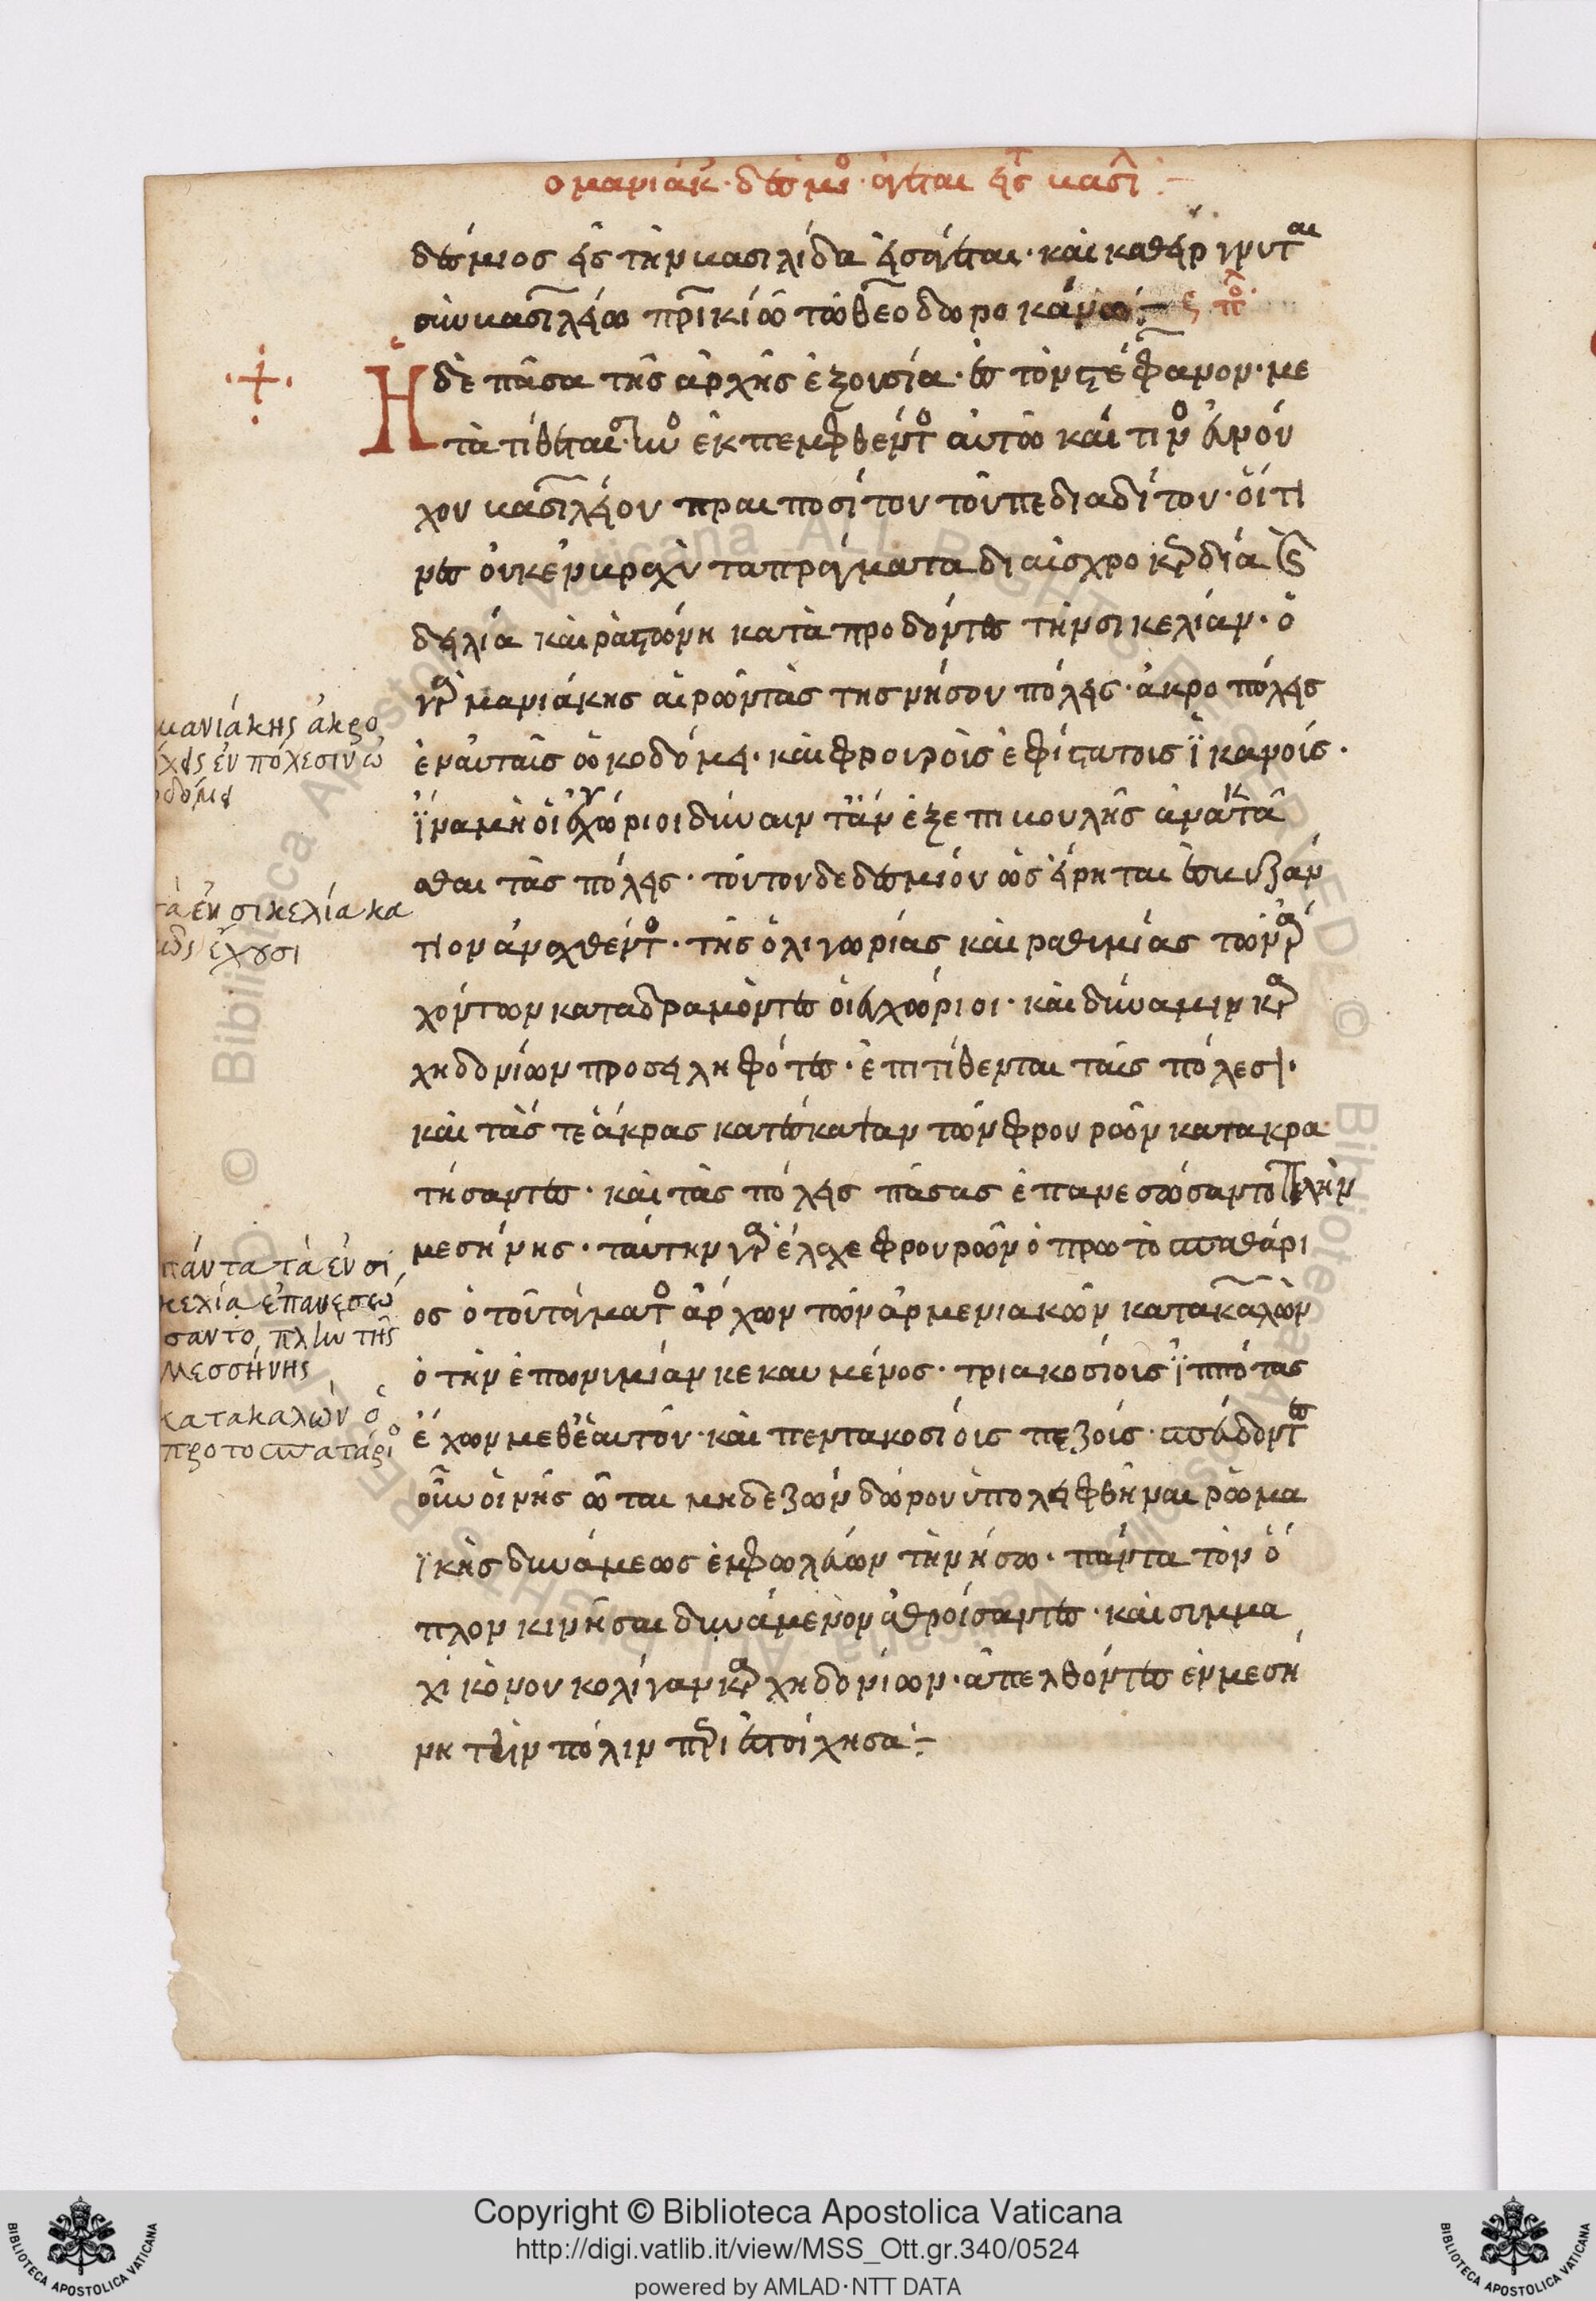 ο μανιάκ · δέσμι · άγεται εις βασιλ :-
δέσμιος εἰς τὴν βασιλίδα εἰσάγεται · καὶ καθείργνυται
σὺν βασιλείω πατρικίω τῶ θεοδωροκάνω :-
Ἡ δὲ πᾶσα τῆς ἀρχῆς ἐξουσία · ἐς τὸν στέφανον · με
τὰ τίθεται · συνεκπεμφθέντος αὐτῶ καί τινος εὐνού
χου βασιλείου πραιποσίτου τοῦ πεδιαδίτου · οἵτι
νες οὐκ ἐν βραχεῖ τὰ πράγματα δι αἰσχροκερδία καὶ
δειλία καὶ ῥαστώνη καταπροδόντες τὴν σικελίαν · ὁ
γὰρ μανιάκης αἱρῶν τὰς τῆς νήσου πόλεις · ἀκροπόλεις
ἐν αὐταῖς ὠκοδόμει · καὶ φρουροὺς ἐφίστα τοὺς ϊκανούς ·
ϊνα μὴ οἱ ἐγχώριοι δύναιντ ἂν ἐξ ἐπιβουλῆς ἀνακτᾶ
σθαι τὰς πόλεις · τούτου δὲ δεσμίου ὡς εἴρηται ἐς βυζάν
τιον ἀναχθέντος · τῆς ὀλιγωρίας καὶ ῥαθυμίας τῶν ἀρ
χόντων καταδραμόντες οἱ ἐγχώριοι · καὶ δύναμιν καρ
χηδονίων προσειληφότες · ἐπιτίθενται ταῖς πόλεσι ·
καὶ τάς τε ἄκρας κατέσκαψαν τῶν φρουρῶν κατακρα
τήσαντες · καὶ τὰς πόλεις πάσας ἐπανεσώσαντο πλὴν
μεσήνης · ταύτην γὰρ ἔλαχε φρουρῶν ὁ πρωτοσπαθάρι
ος ὁ τοῦ τάγματος ἄρχων τῶν ἀρμενιακῶν κατακαλὼν
ὁ τὴν ἐπωνυμίαν κεκαυμένος · τριακοσίους ϊππότας
ἔχων μεθ ἑαυτοῦ · καὶ πεντακοσίους πεζούς · σπεύδοντες
οὖν οἱ νησιῶται μηδὲ ζώπυρον ὑπολειφθῆναι ῥωμα
ϊκῆς δυνάμεως ἐμφωλεύων τῆ νήσω · πάντα τὸν ὅ
πλον κινῆσαι δυνάμενον ἀθροίσαντες · καὶ συμμα
χικὸν οὐκ ὀλίγαν καρχηδονίων · ἀπελθόντες ἐν μεσή
νη τὴν πόλιν περιεστοίχησαν :-
μανιάκης ἀκρο
λεις ἐν πόλεσιν ὠ
οδόμει
τὰ ἐν σικελία κα
κῶς ἔχουσι
πάντα τὰ ἐν σι
κελία ἐπανεσω
σαντο, πλὴν τῆς
Μεσσήνης
κατακαλὼν ὁ
προτοσπατάριο
Copyright © Biblioteca Apostolica Vaticana
http://digi.vatlib.it/view/MSS_Ott.gr.340/0524
powered by AMLAD·NTT DATA